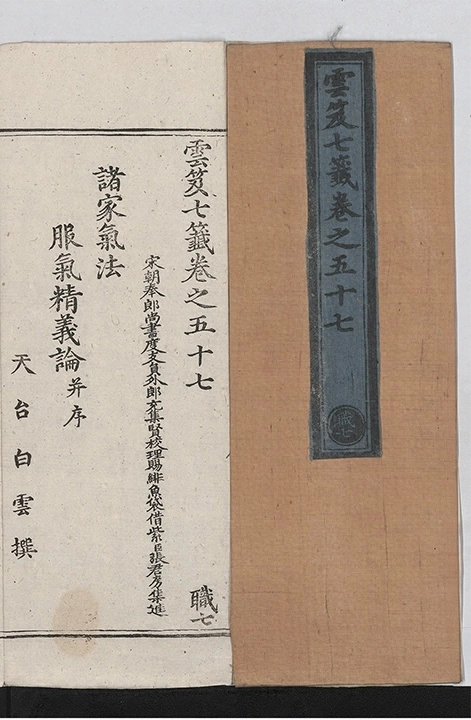 雲笈七籤卷之五十七
職七
雲笈七籤卷之五十七
職七
宋朝奉郎尚書度支員外郎充集賢校理賜緋魚袋借紫臣張君房集進
諸家氣法
服氣精義論并序
天台白雲撰